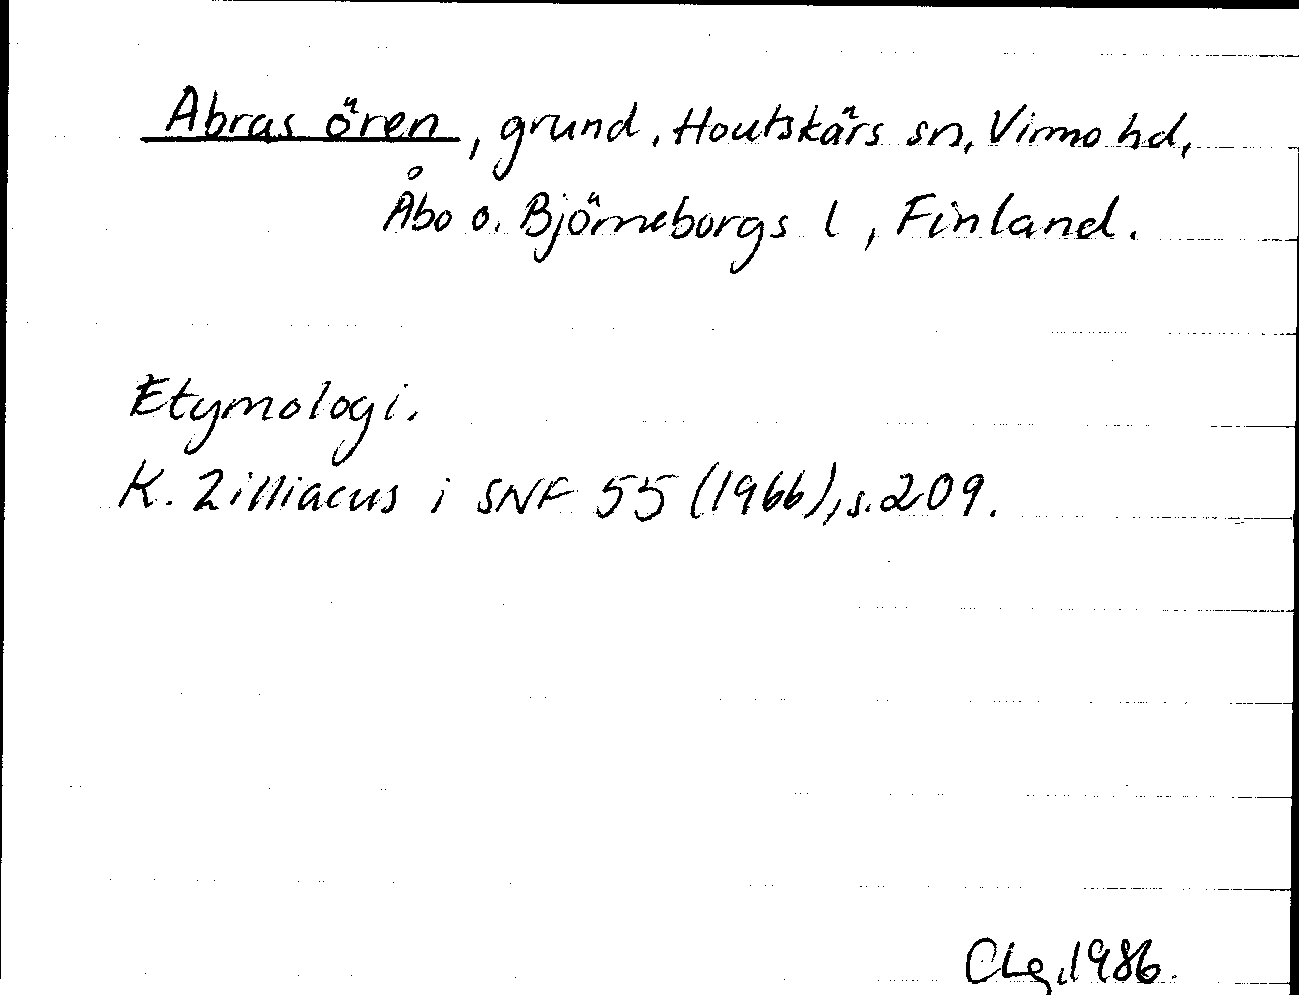 Abras ören, grund, Houtskärs sn, Virmo hd,
Åbo o. Björneborgs l, Finland.
Etymologi.
K. Zilliacus i SNF 55 (1966), s. 209.
CLg, 1986.